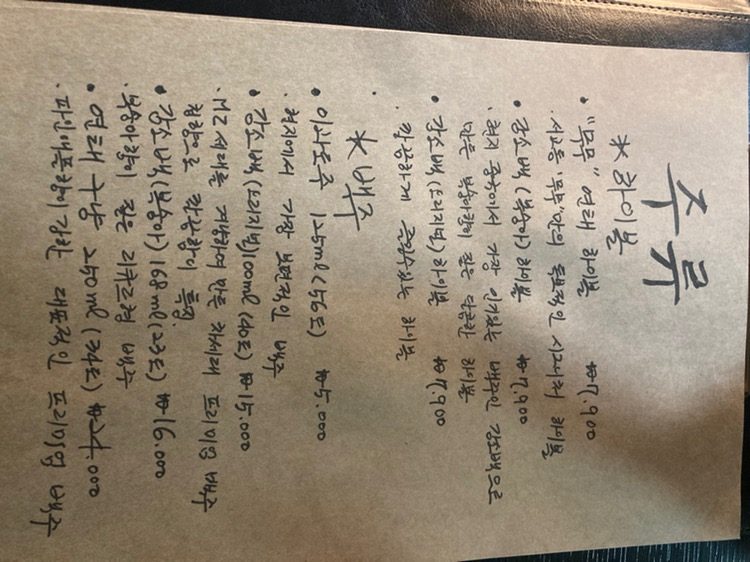 주류
* 하이볼
• "모무" 연태 하이볼 ₩7,900
· 시그니처 하이볼
• 강소백(복숭아) 하이볼 ₩7,900
· 현지 중국에서 가장 인기있는 백주인 강소백으로
만든 복숭아향이 감도는 달콤한 하이볼
• 강소백(오리지널) 하이볼 ₩7,900
· 깔끔하게 즐길수있는 하이볼
* 백주
• 이과두주 125ml (56도) ₩5,000
· 현지에서 가장 보편적인 백주
• 강소백(오리지널) 100ml (40도) ₩15,000
· MZ세대를 겨냥하여 만든 차세대 프리미엄 백주
청량으로 깔끔함이 특징
• 강소백(복숭아) 168ml (23도) ₩16,000
· 복숭아향이 감도는 리큐르형 백주
• 연태 구냥 250ml (34도) ₩24,000
· 파인애플향이나는 대표적인 프리미엄 백주